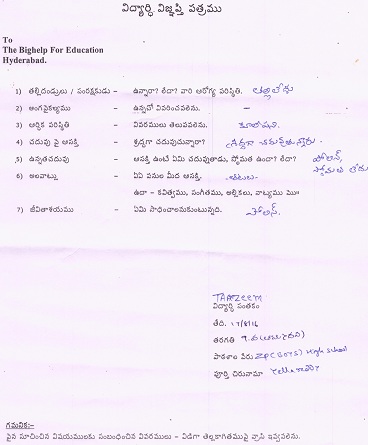 విద్యార్థి విజ్ఞప్తి పత్రము
To
The Bighelp For Education
Hyderabad.
1) తల్లిదండ్రులు / సంరక్షకుడు – ఉన్నారా? లేదా? వారి ఆరోగ్య పరిస్థితి. తల్లి లేదు
2) అంగవైకల్యము – ఉన్నచో వివరించవలెను. –
3) ఆర్థిక పరిస్థితి – వివరములు తెలుపవలెను.
4) చదువు పై ఆసక్తి – శ్రద్ధగా చదువుచున్నారా?
5) ఉన్నతచదువు – ఆసక్తి ఉంటే ఏమి చదువుతాడు, స్తోమత ఉందా? లేదా? పోలీస్, స్తోమత లేదు
6) అలవాట్లు – ఏఏ పనుల మీద ఆసక్తి. ఆటలు
ఉదా – కవిత్వము, సంగీతము, అల్లికలు, నాట్యము మొ॥
7) జీవితాశయము – ఏమి సాధించాలనుకుంటున్నది. పోలీస్.
TARZEEM
విద్యార్థి సంతకం
తేది. 17/8/16
తరగతి
పాఠశాల పేరు ZPC (BOYS) High School
పూర్తి చిరునామా
గమనిక:-
పైన సూచించిన విషయములకు సంబంధించిన వివరములు – విడిగా తెల్లకాగితముపై వ్రాసి ఇవ్వవలెను.